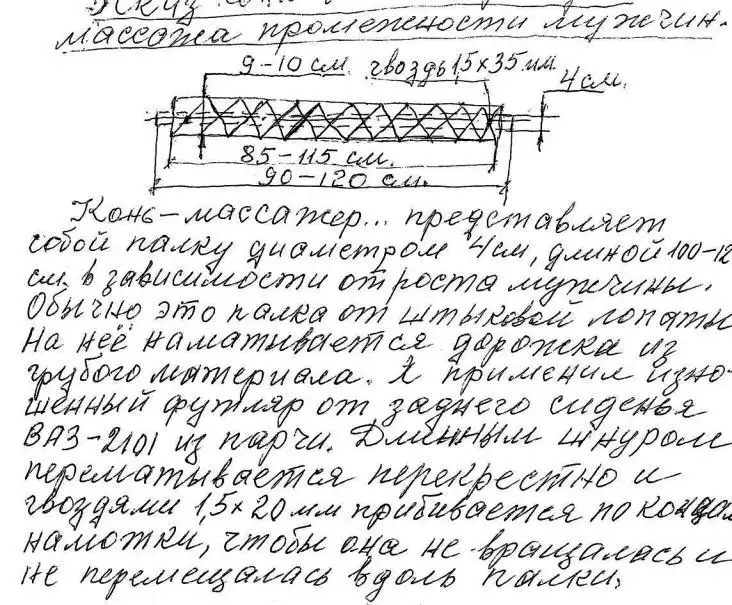 Эскиз коня
массажа промежности мужчин.
9-10 см. гвоздь 1,5×35 мм.
4 см.
85-115 см.
90-120 см.
Конь-массажер... представляет
собой палку диаметром 4 см, длиной 100-12
см. в зависимости от роста мужчины.
Обычно это палка от штыковой лопаты
На неё наматывается дорожка из
грубого материала. Я применил изно-
шенный футляр от заднего сиденья
ВАЗ-2101 из парчи. Длинным шнуром
перематывается перекрестно и
гвоздями 1,5×20 мм прибивается по концам
намотки, чтобы она не вращалась и
не перемещалась вдоль палки.